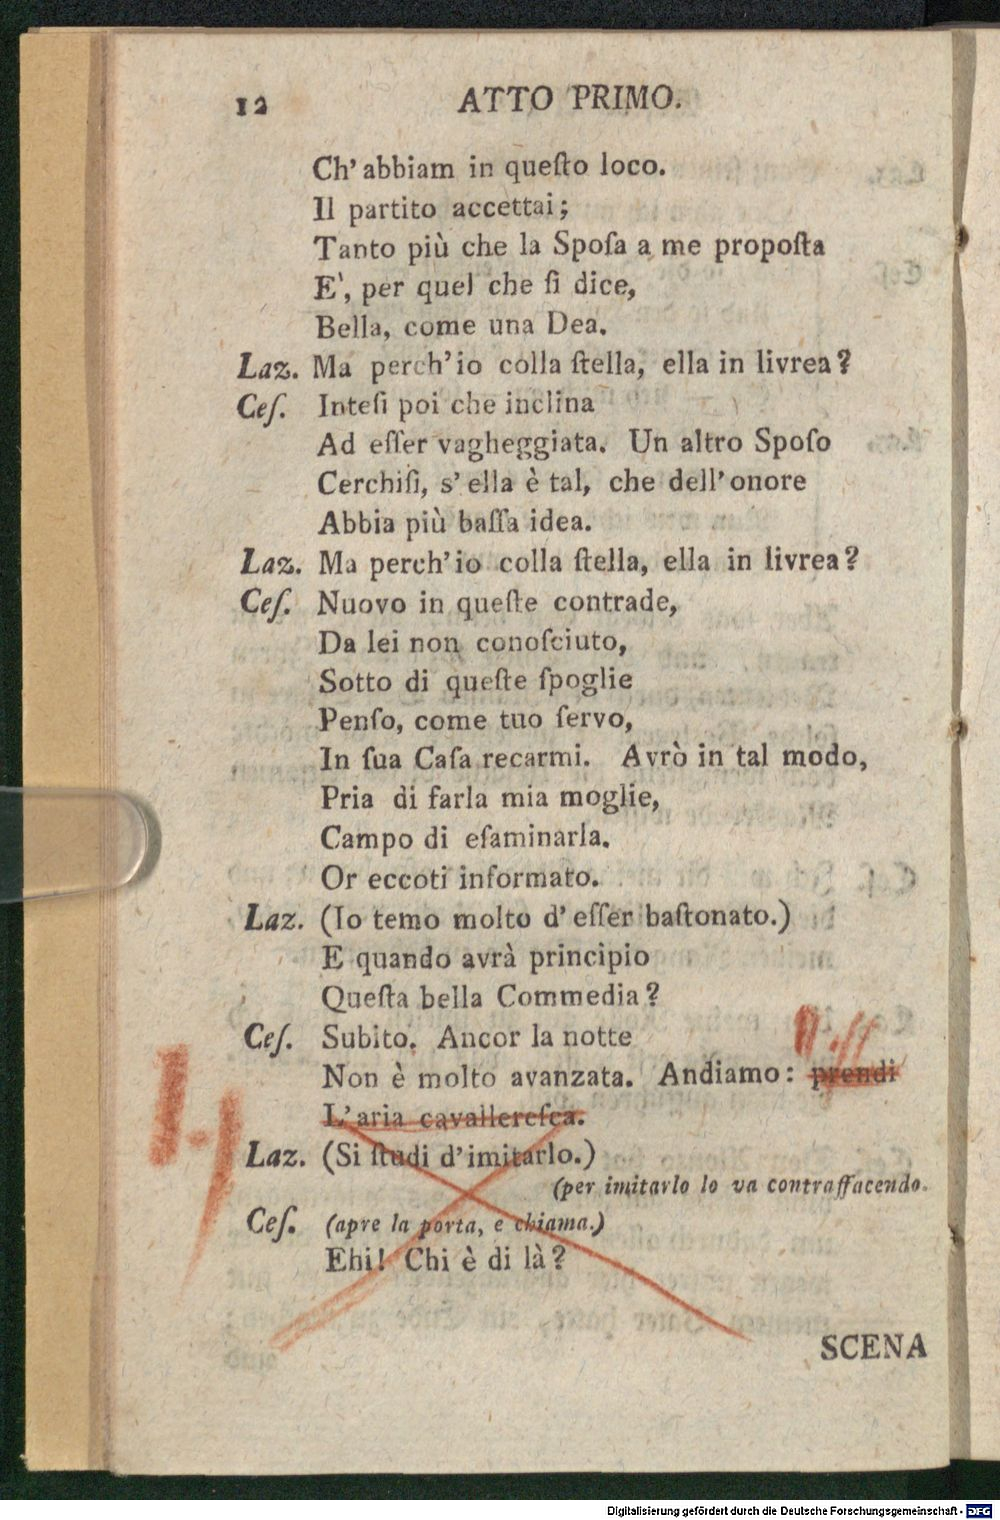 12 ATTO PRIMO.
Ch'abbiam in queſto loco.
Il partito accettai;
Tanto più che la Spoſa a me propoſta
E', per quel che ſi dice,
Bella, come una Dea.
Laz. Ma perch'io colla ſtella, ella in livrea?
Ceſ. Inteſi poi che inclina
Ad eſſer vagheggiata. Un altro Spoſo
Cerchiſi, s'ella è tal, che dell'onore
Abbia più baſſa idea.
Laz. Ma perch'io colla ſtella, ella in livrea?
Ceſ. Nuovo in queſte contrade,
Da lei non conoſciuto,
Sotto di queſte ſpoglie
Penſo, come tuo ſervo,
In ſua Caſa recarmi. Avrò in tal modo,
Pria di farla mia moglie,
Campo di eſaminarla.
Or eccoti informato.
Laz. (Io temo molto d'eſſer baſtonato.)
E quando avrà principio
Queſta bella Commedia?
Ceſ. Subito. Ancor la notte
Non è molto avanzata. Andiamo: prendi
L'aria cavallereſca.
Laz. (Si ſtudi d'imitarlo.)
(per imitarlo lo va contraffacendo.
Ceſ. (apre la porta, e chiama.)
Ehi! Chi è di là?
SCENA
Digitalisierung gefördert durch die Deutsche Forschungsgemeinschaft - DFG